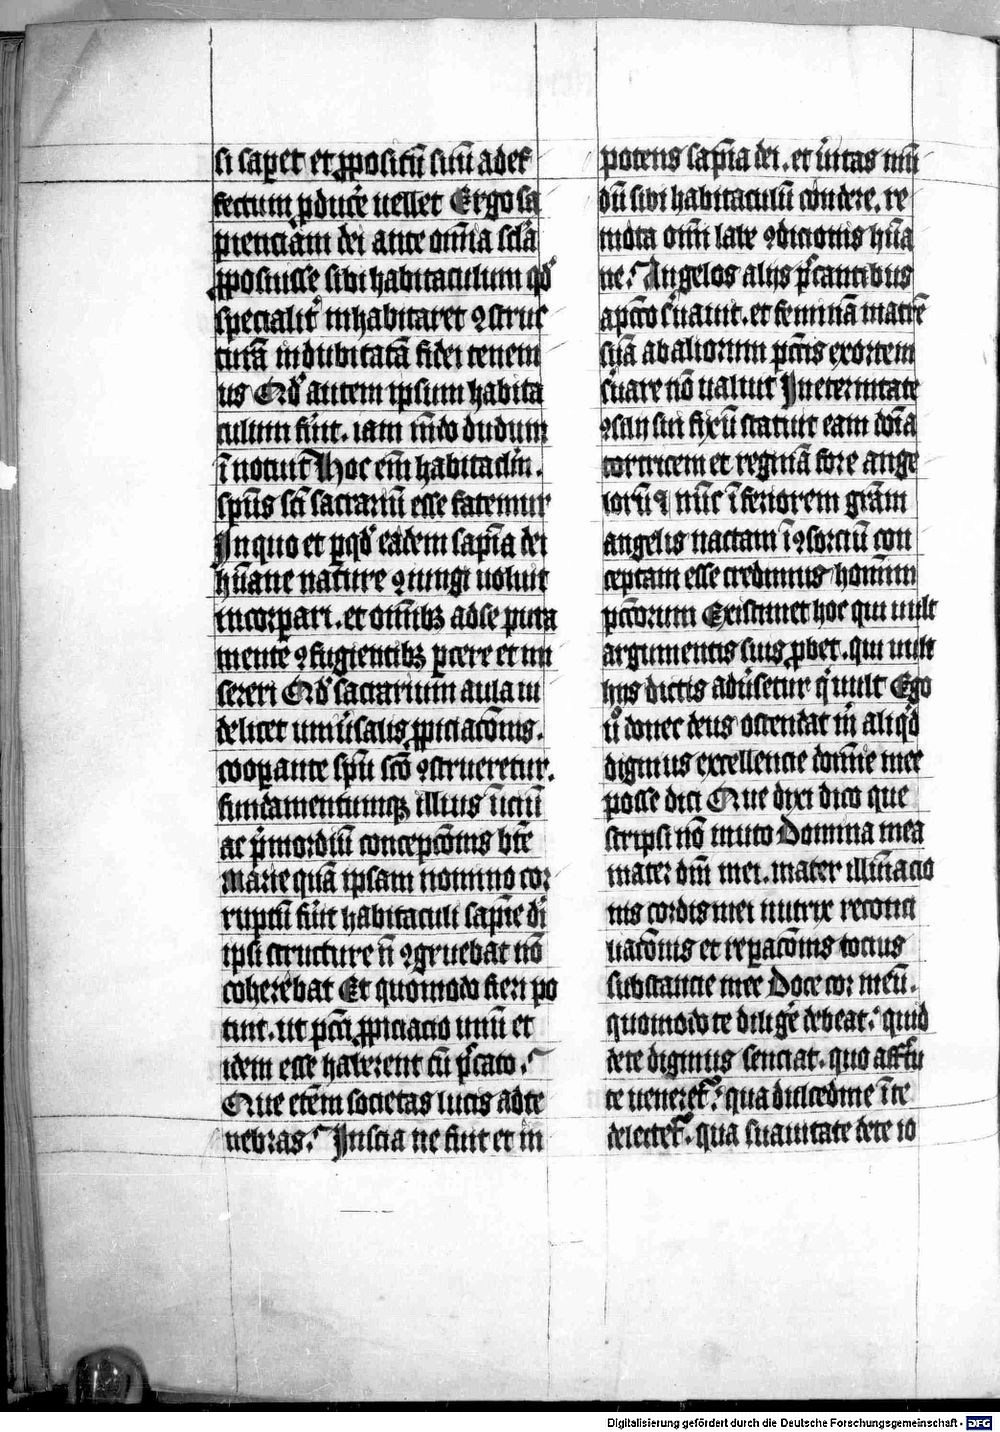 si sapet et ꝓpositū suū adef
fectum ꝓducˀe uellet Ergo sa
pienciam dei ante om̄ia scl̄a
ꝓposuisse sibi habitaculum qđ
specialitˀ inhabitaret ꝯstruc
turā indubitatā fidei tenem
us Qđ autem ipsum habita
culum fūit. iam mūdo dudum
ī notuit Hoc em̄ habitaclm̄.
sp̄us sc̄i sacrariū esse fatemur
In quo et ꝑ qđ eadem sapīa dei
hūane nature ꝯiungi uoluit
incorpari. et om̄ibꝫ adse pura
mente ꝯfugientibꝫ ꝑcere et mi
sereri Qđ sacrarium aula ui
delicet uniūsalis ꝓpiciacōnis.
cooꝑante sp̄u scō ꝯstrueretur.
fundamentumqꝫ illius iniciū
ac pˀmordiū concepcōnis btē
Marie quā ipsam nomino cor
ruptū fūit habitaculi sapīe dī
ipsi structure n̄ ꝯgruebat nō
coherebat Et quomodo fieri po
tuit. ut pcc̄i ꝓpiciacio unū et
idem esse haberent cū pˀcato.
Que etem̄ societas lucis adte
nebras. Iusta ne fuit et in
potens sapīa dei. et ūitas mū
dū sibi habitaculū condere. re
mota om̄i labe ꝯdicionis hūa
ne. Angelos alijs pˀcantibus
apcc̄o sˀuauit. et feminā matrē
suā ab aliorum pcc̄is exortem
sˀuare nō ualuit In eternitate
ꝯsilij sui fixū statuit eam dōia
tortricem et reginā fore ange
lorū nūc īferiorem grām
angelis nactam ī ꝯsorciū con
ceptam esse credimus hominū
pcc̄orum Existimet hoc qui uult
argumentis suis ꝓbet. qui uult
hijs dictis adūsetur qˀ uult Ego
ūˀ donec deus ostendat m̄ aliqˀd
dignius excellencie domīe mee
posse dici Que dixi dico que
scripsi nō muto Domina mea
mater dn̄i mei. mater illūiacio
nis cordis mei nutrix reconci
liacōnis et reꝑacōnis tocius
substancie mee Doce cor meū.
quomodo te diligˀe debeat. quid
dete dignius senciat. quo affc̄u
te uenereтˀ. qua dulcedine īte
delectetˀ. qua suauitate dete lo
Digitalisierung gefördert durch die Deutsche Forschungsgemeinschaft - DFG